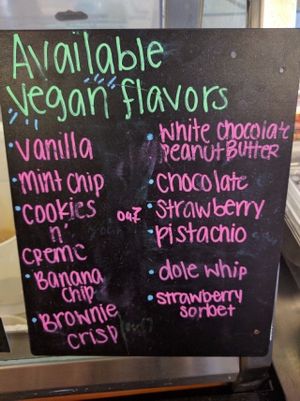 Available
vegan flavors
• vanilla
• mint chip
• cookies
n'
creme
• Banana
chip
• Brownie
crisp
• white chocolate
peanut Butter
• chocolate
• strawberry
• pistachio
• dole whip
• strawberry
sorbet